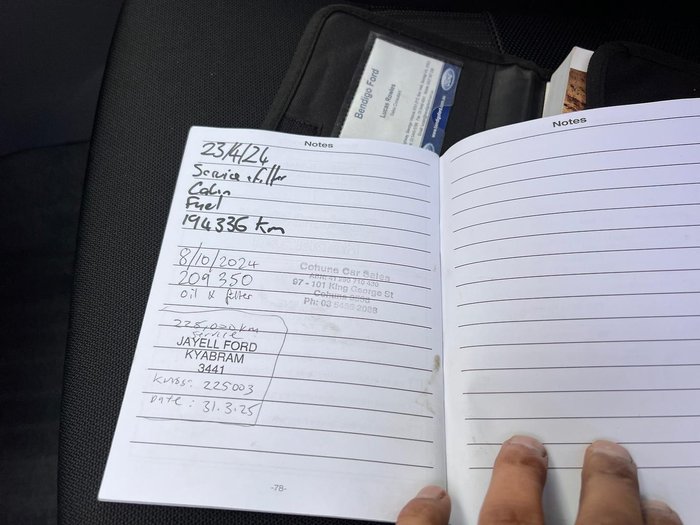 Bendigo Ford
Lucas Rowles
Notes
23/4/24
Service + filter
Cabin
Fuel
194336 Km
8/10/2024
209 350
oil & filter
Cohuna Car Sales
97 - 101 King George St
Cohuna 3568
Ph: 03 5456 2028
225,000 km
Service
JAYELL FORD
KYABRAM
3441
Kms: 225003
Date: 31.3.25
-78-
Notes